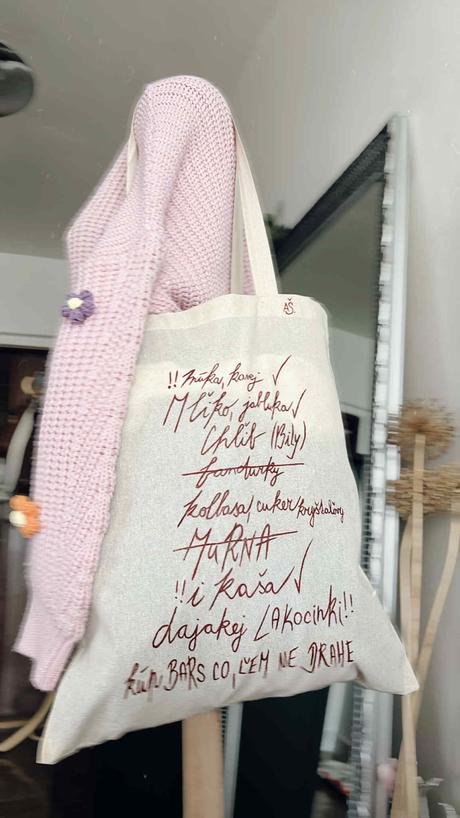 AŠ.
!! múka, kavej ✓
Mliko, jablka ✓
Chlib (Bily)
bandurky
kolbasa/cuker/kryštalovy
MURNA
!! i kaša ✓
dajakej LAKocinki!!
kúp BARS CO, ĽEM NE DRAHE